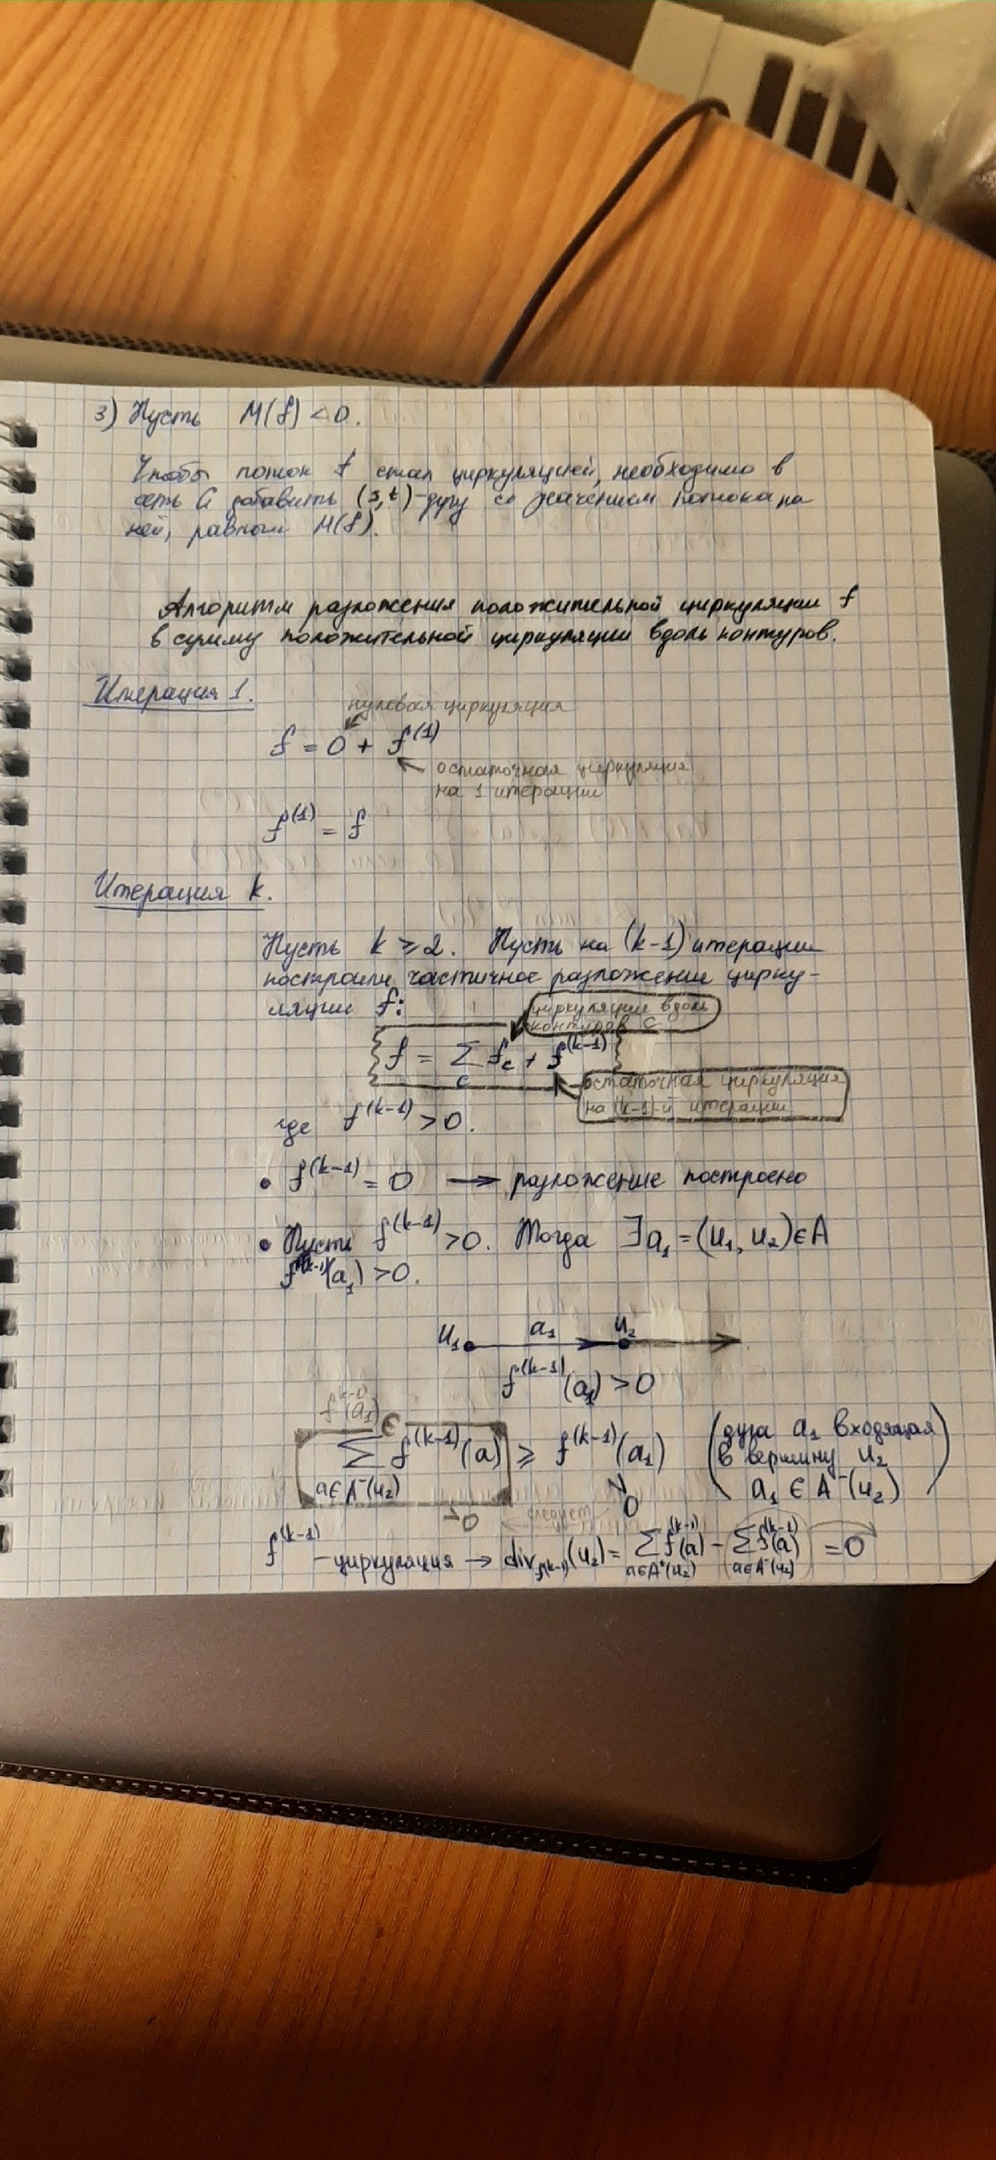 3) Пусть M(f) < 0.
Чтобы поток f стал циркуляцией, необходимо в
сеть G добавить (s,t)-дугу со значением потока на
ней, равным M(f).
Алгоритм разложения положительной циркуляции f
в сумму положительной циркуляции вдоль контуров.
Итерация 1.
нулевая циркуляция
f = 0 + f^(1)
остаточная циркуляция
на 1 итерации
f^(1) = f
Итерация k.
Пусть k ≥ 2. Пусть на (k-1) итерации
построили частичное разложение цирку-
ляции f:
циркуляции вдоль
контуров C
f = ∑_C f_C + f^(k-1)
остаточная циркуляция
на (k-1)-й итерации
где f^(k-1) > 0.
• f^(k-1) = 0 → разложение построено
• Пусть f^(k-1) > 0. Тогда ∃ a₁ = (u₁, u₂) ∈ A
f^(k-1)(a₁) > 0.
u₁ a₁ u₂
f^(k-1)(a₁) > 0
f^(k-1)(a₁) ∈
∑_{a∈A⁻(u₂)} f^(k-1)(a) ≥ f^(k-1)(a₁) (дуга a₁ входящая
в вершину u₂
a₁ ∈ A⁻(u₂))
>0
∨
0
f^(k-1) - циркуляция → div_{f^(k-1)}(u₂) = ∑_{a∈A⁺(u₂)} f^(k-1)(a) - ∑_{a∈A⁻(u₂)} f^(k-1)(a) = 0